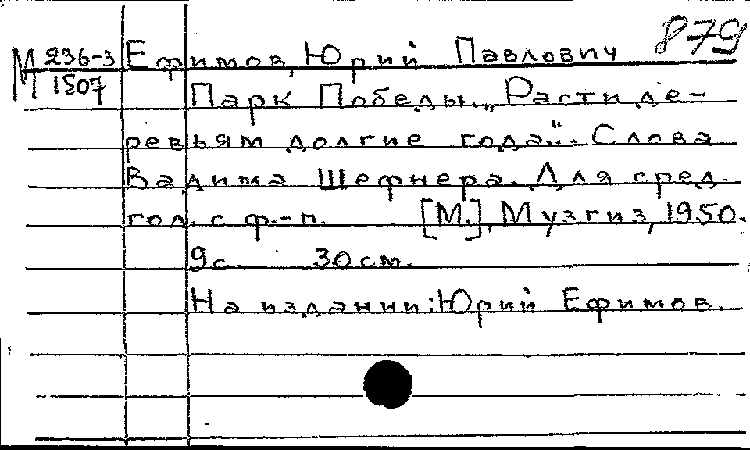 879
М 236-3 Ефимов, Юрий Павлович
1507
Парк Победы. „Расти де-
ревьям долгие года". Слова
Вадима Шефнера. Для сред.
гол. с ф.-п. [М.], Музгиз, 1950.
9с. 30 см.
На издании: Юрий Ефимов.